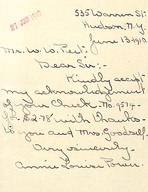 535 Warren St.
Hudson, N.Y.
June 13, 1910.
Mr. W. W. Peet:
Dear Sir:-
Kindly accept
my acknowledgement
of your Check - No. 9514 -
$2.78 with thanks
to you and Mrs. Goodsell.
Very sincerely -
Annie Louise Power.